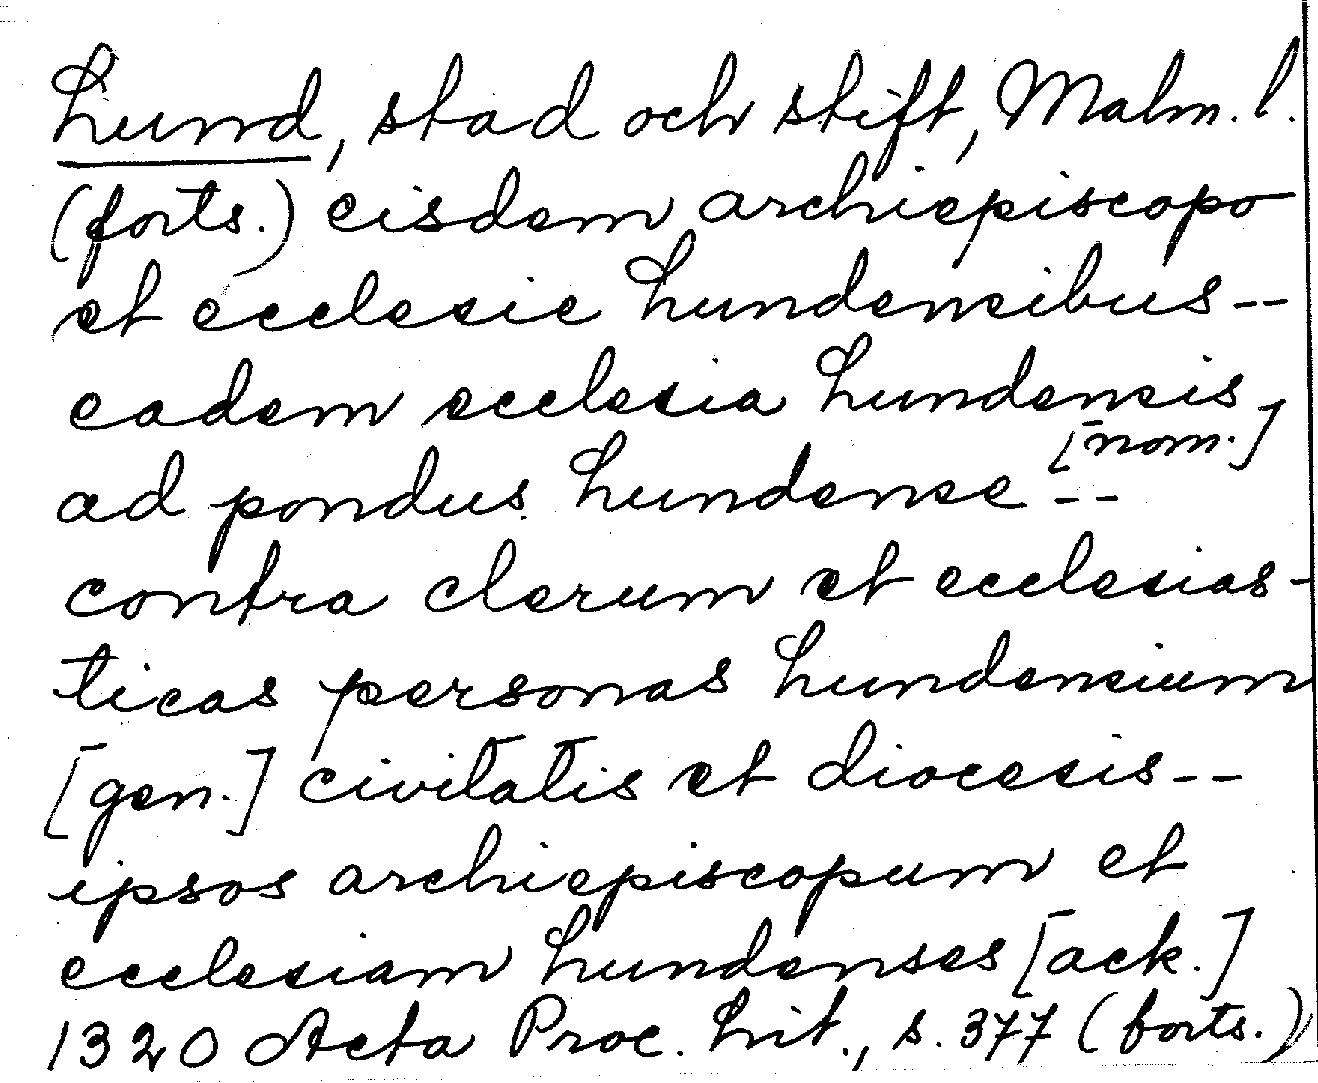 Lund, stad och stift, Malm. l.
(forts.) eisdem archiepiscopo
et ecclesie Lundensibus --
eadem ecclesia Lundensis
[nom.]
ad pondus Lundense --
contra clerum et ecclesias-
ticas personas Lundensium
[gen.] civitatis et diocesis --
ipsos archiepiscopum et
ecclesiam Lundenses [ack.]
1320 Acta Proc. Lit., s. 377 (forts.)